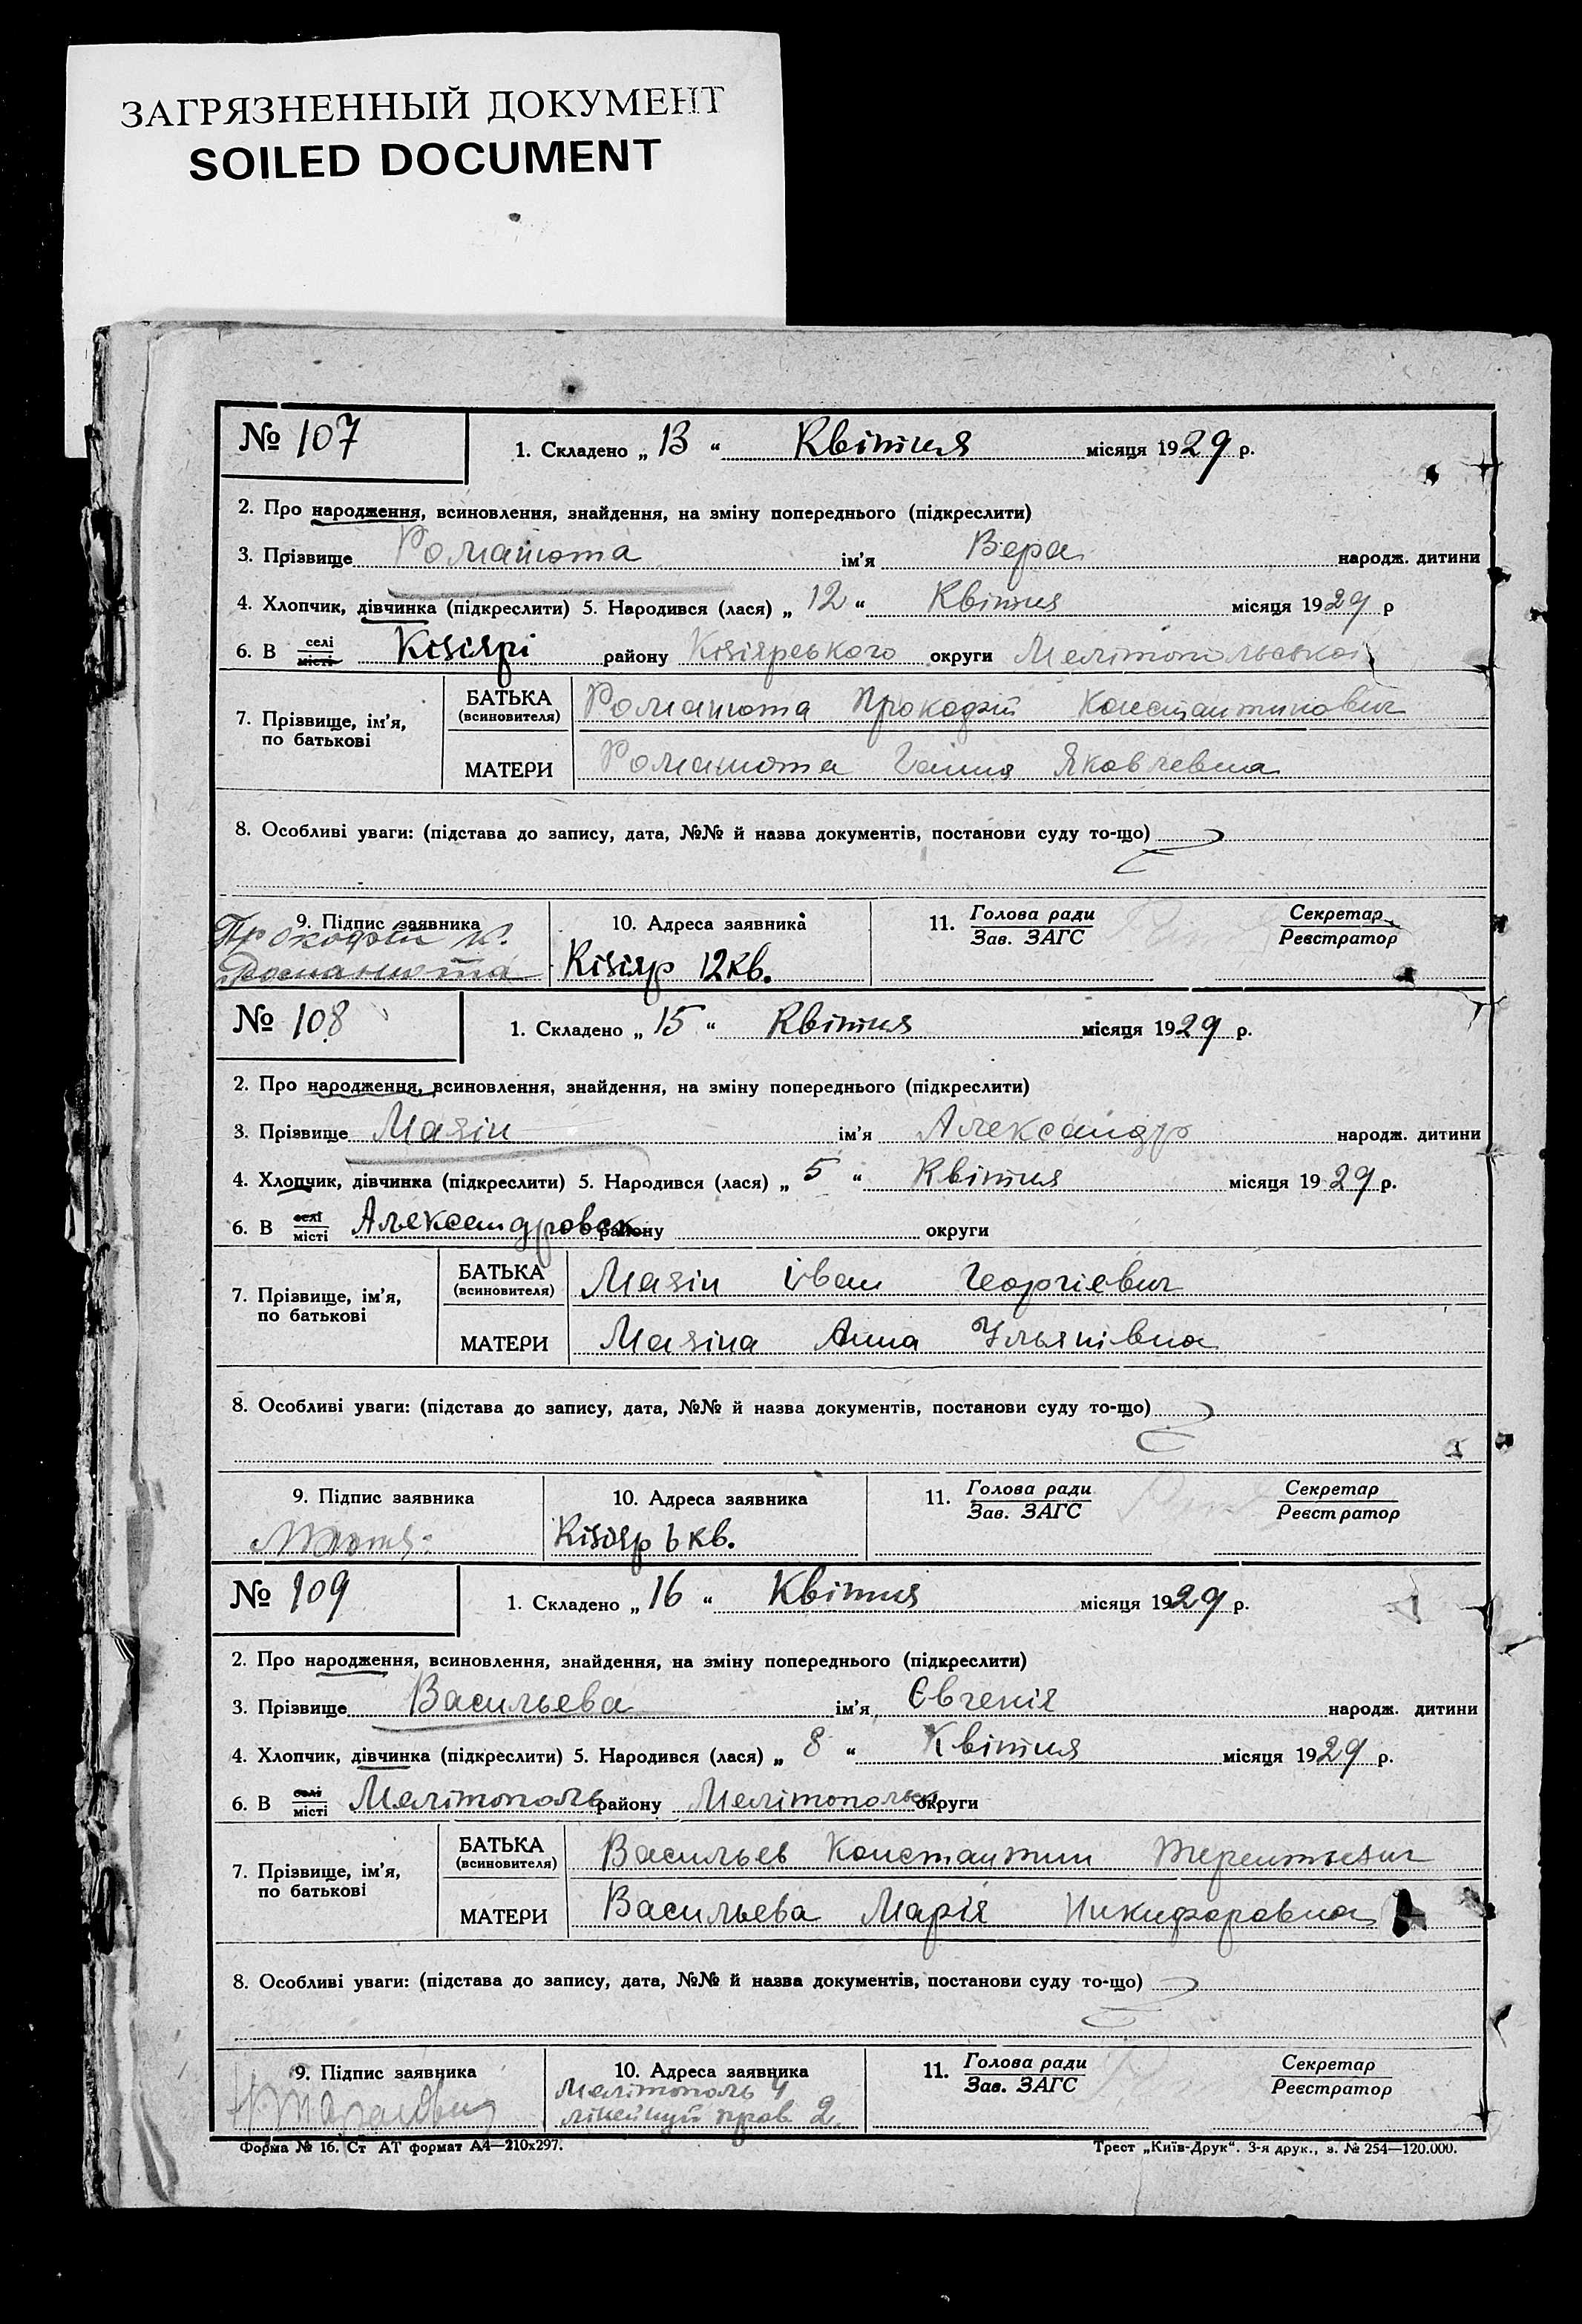 ЗАГРЯЗНЕННЫЙ ДОКУМЕНТ
SOILED DOCUMENT
№ 107 1. Складено „ 13 “ Квітня місяця 1929 р.
2. Про народження, всиновлення, знайдення, на зміну попереднього (підкреслити)
3. Прізвище Романюта ім’я Вера народж. дитини
4. Хлопчик, дівчинка (підкреслити) 5. Народився (лася) „ 12 “ Квітня місяця 1929 р
6. В селі місті Кізіярі району Кізіярського округи Мелітопольської
7. Прізвище, ім’я, по батькові
БАТЬКА (всиновителя) Романюта Прокофій Константинович
МАТЕРИ Романюта Ганна Яковлевна
8. Особливі уваги: (підстава до запису, дата, №№ й назва документів, постанови суду то-що)
9. Підпис заявника 10. Адреса заявника 11. Голова ради Зав. ЗАГС Секретар Реєстратор
Прокофій К.
Романюта Кізіяр 12 кв.
№ 108 1. Складено „ 15 “ Квітня місяця 1929 р.
2. Про народження, всиновлення, знайдення, на зміну попереднього (підкреслити)
3. Прізвище Мазін ім’я Александр народж. дитини
4. Хлопчик, дівчинка (підкреслити) 5. Народився (лася) „ 5 “ Квітня місяця 1929 р.
6. В селі місті Александровск району округи
7. Прізвище, ім’я, по батькові
БАТЬКА (всиновителя) Мазін Іван Георгієвич
МАТЕРИ Мазіна Анна Ульянівна
8. Особливі уваги: (підстава до запису, дата, №№ й назва документів, постанови суду то-що)
9. Підпис заявника 10. Адреса заявника 11. Голова ради Зав. ЗАГС Секретар Реєстратор
Кізіяр 6 кв.
№ 109 1. Складено „ 16 “ Квітня місяця 1929 р.
2. Про народження, всиновлення, знайдення, на зміну попереднього (підкреслити)
3. Прізвище Васильева ім’я Євгенія народж. дитини
4. Хлопчик, дівчинка (підкреслити) 5. Народився (лася) „ 8 “ Квітня місяця 1929 р.
6. В селі місті Мелітополь району Мелітопольськ округи
7. Прізвище, ім’я, по батькові
БАТЬКА (всиновителя) Васильев Константин Терентьевич
МАТЕРИ Васильева Марія Никифоровна
8. Особливі уваги: (підстава до запису, дата, №№ й назва документів, постанови суду то-що)
9. Підпис заявника 10. Адреса заявника 11. Голова ради Зав. ЗАГС Секретар Реєстратор
Мелітополь 4
лінейний пров. 2
Форма № 16. Ст АТ формат А4—210x297. Трест „Київ-Друк“. 3-я друк., з. № 254—120.000.